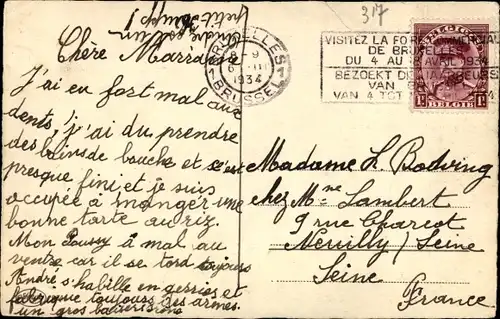 317
petit
André
Chère Marraine
J'ai eu fort mal aux
dents, j'ai du prendre
des bains de bouche et c'est
presque fini et je suis
occupée à manger une
bonne tarte au riz.
Mon Poussy à mal au
ventre car il se tord toujours
André s'habille en gerries et
fabrique toujours des armes.
un gros
BRUXELLES
1934
BRUSSEL
VISITEZ LA FOIRE COMMERCIALE
DE BRUXELLES
DU 4 AU 18 AVRIL 1934
BEZOEKT DE JAARBEURS
VAN
VAN 4 TOT
BELGIQUE
BELGIE
1F 1F
Madame L. Bodving
chez Mme Lambert
9 rue Charcot
Neuilly / Seine
Seine
France.